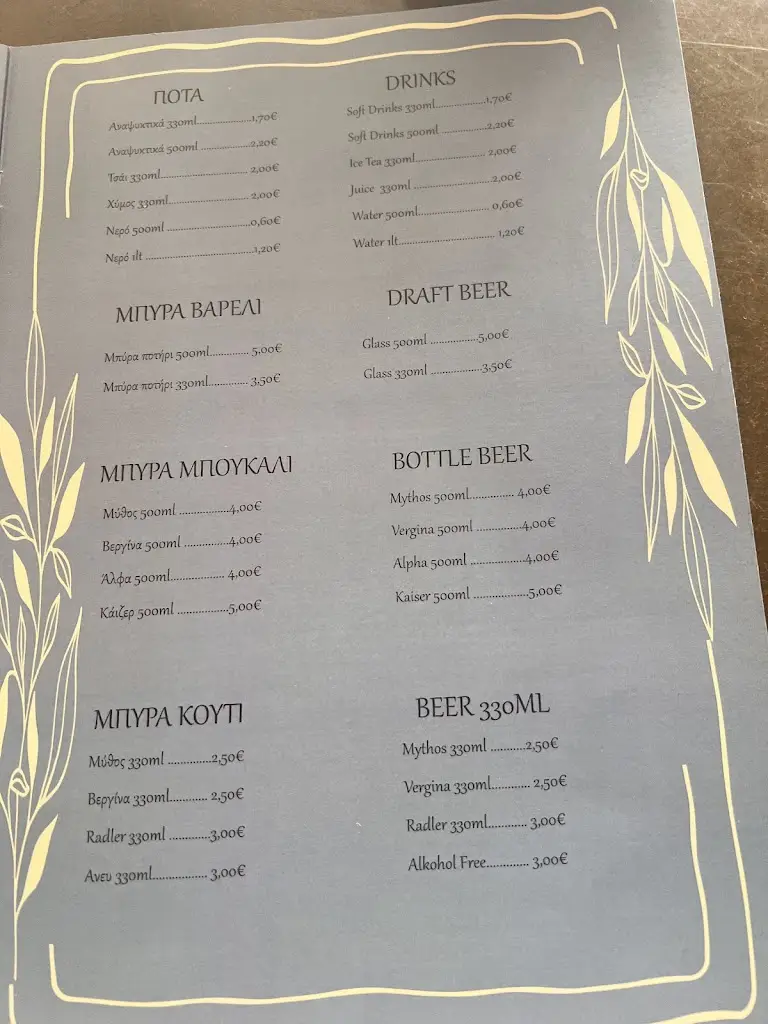 ΠΟΤΑ
Αναψυκτικά 330ml.....................1,70€
Αναψυκτικά 500ml ...................2,20€
Τσάι 330ml................................ 2,00€
Χύμος 330ml............................. 2,00€
Νερό 500ml ..............................0,60€
Νερό 1lt .....................................1,20€
ΜΠΥΡΑ ΒΑΡΕΛΙ
Μπύρα ποτήρι 500ml............. 5,00€
Μπύρα ποτήρι 330ml............. 3,50€
ΜΠΥΡΑ ΜΠΟΥΚΑΛΙ
Μύθος 500ml .................4,00€
Βεργίνα 500ml ...............4,00€
Άλφα 500ml.................. 4,00€
Κάιζερ 500ml .................5,00€
ΜΠΥΡΑ ΚΟΥΤΙ
Μύθος 330ml ..............2,50€
Βεργίνα 330ml............ 2,50€
Radler 330ml .............3,00€
Ανευ 330ml.................. 3,00€
DRINKS
Soft Drinks 330ml....................1,70€
Soft Drinks 500ml ...................2,20€
Ice Tea 330ml........................... 2,00€
Juice 330ml .............................2,00€
Water 500ml........................... 0,60€
Water 1lt.................................. 1,20€
DRAFT BEER
Glass 500ml .................5,00€
Glass 330ml ..................3,50€
BOTTLE BEER
Mythos 500ml............... 4,00€
Vergina 500ml ...............4,00€
Alpha 500ml ..................4,00€
Kaiser 500ml ..................5,00€
BEER 330ML
Mythos 330ml ...........2,50€
Vergina 330ml............ 2,50€
Radler 330ml............ 3,00€
Alkohol Free............. 3,00€